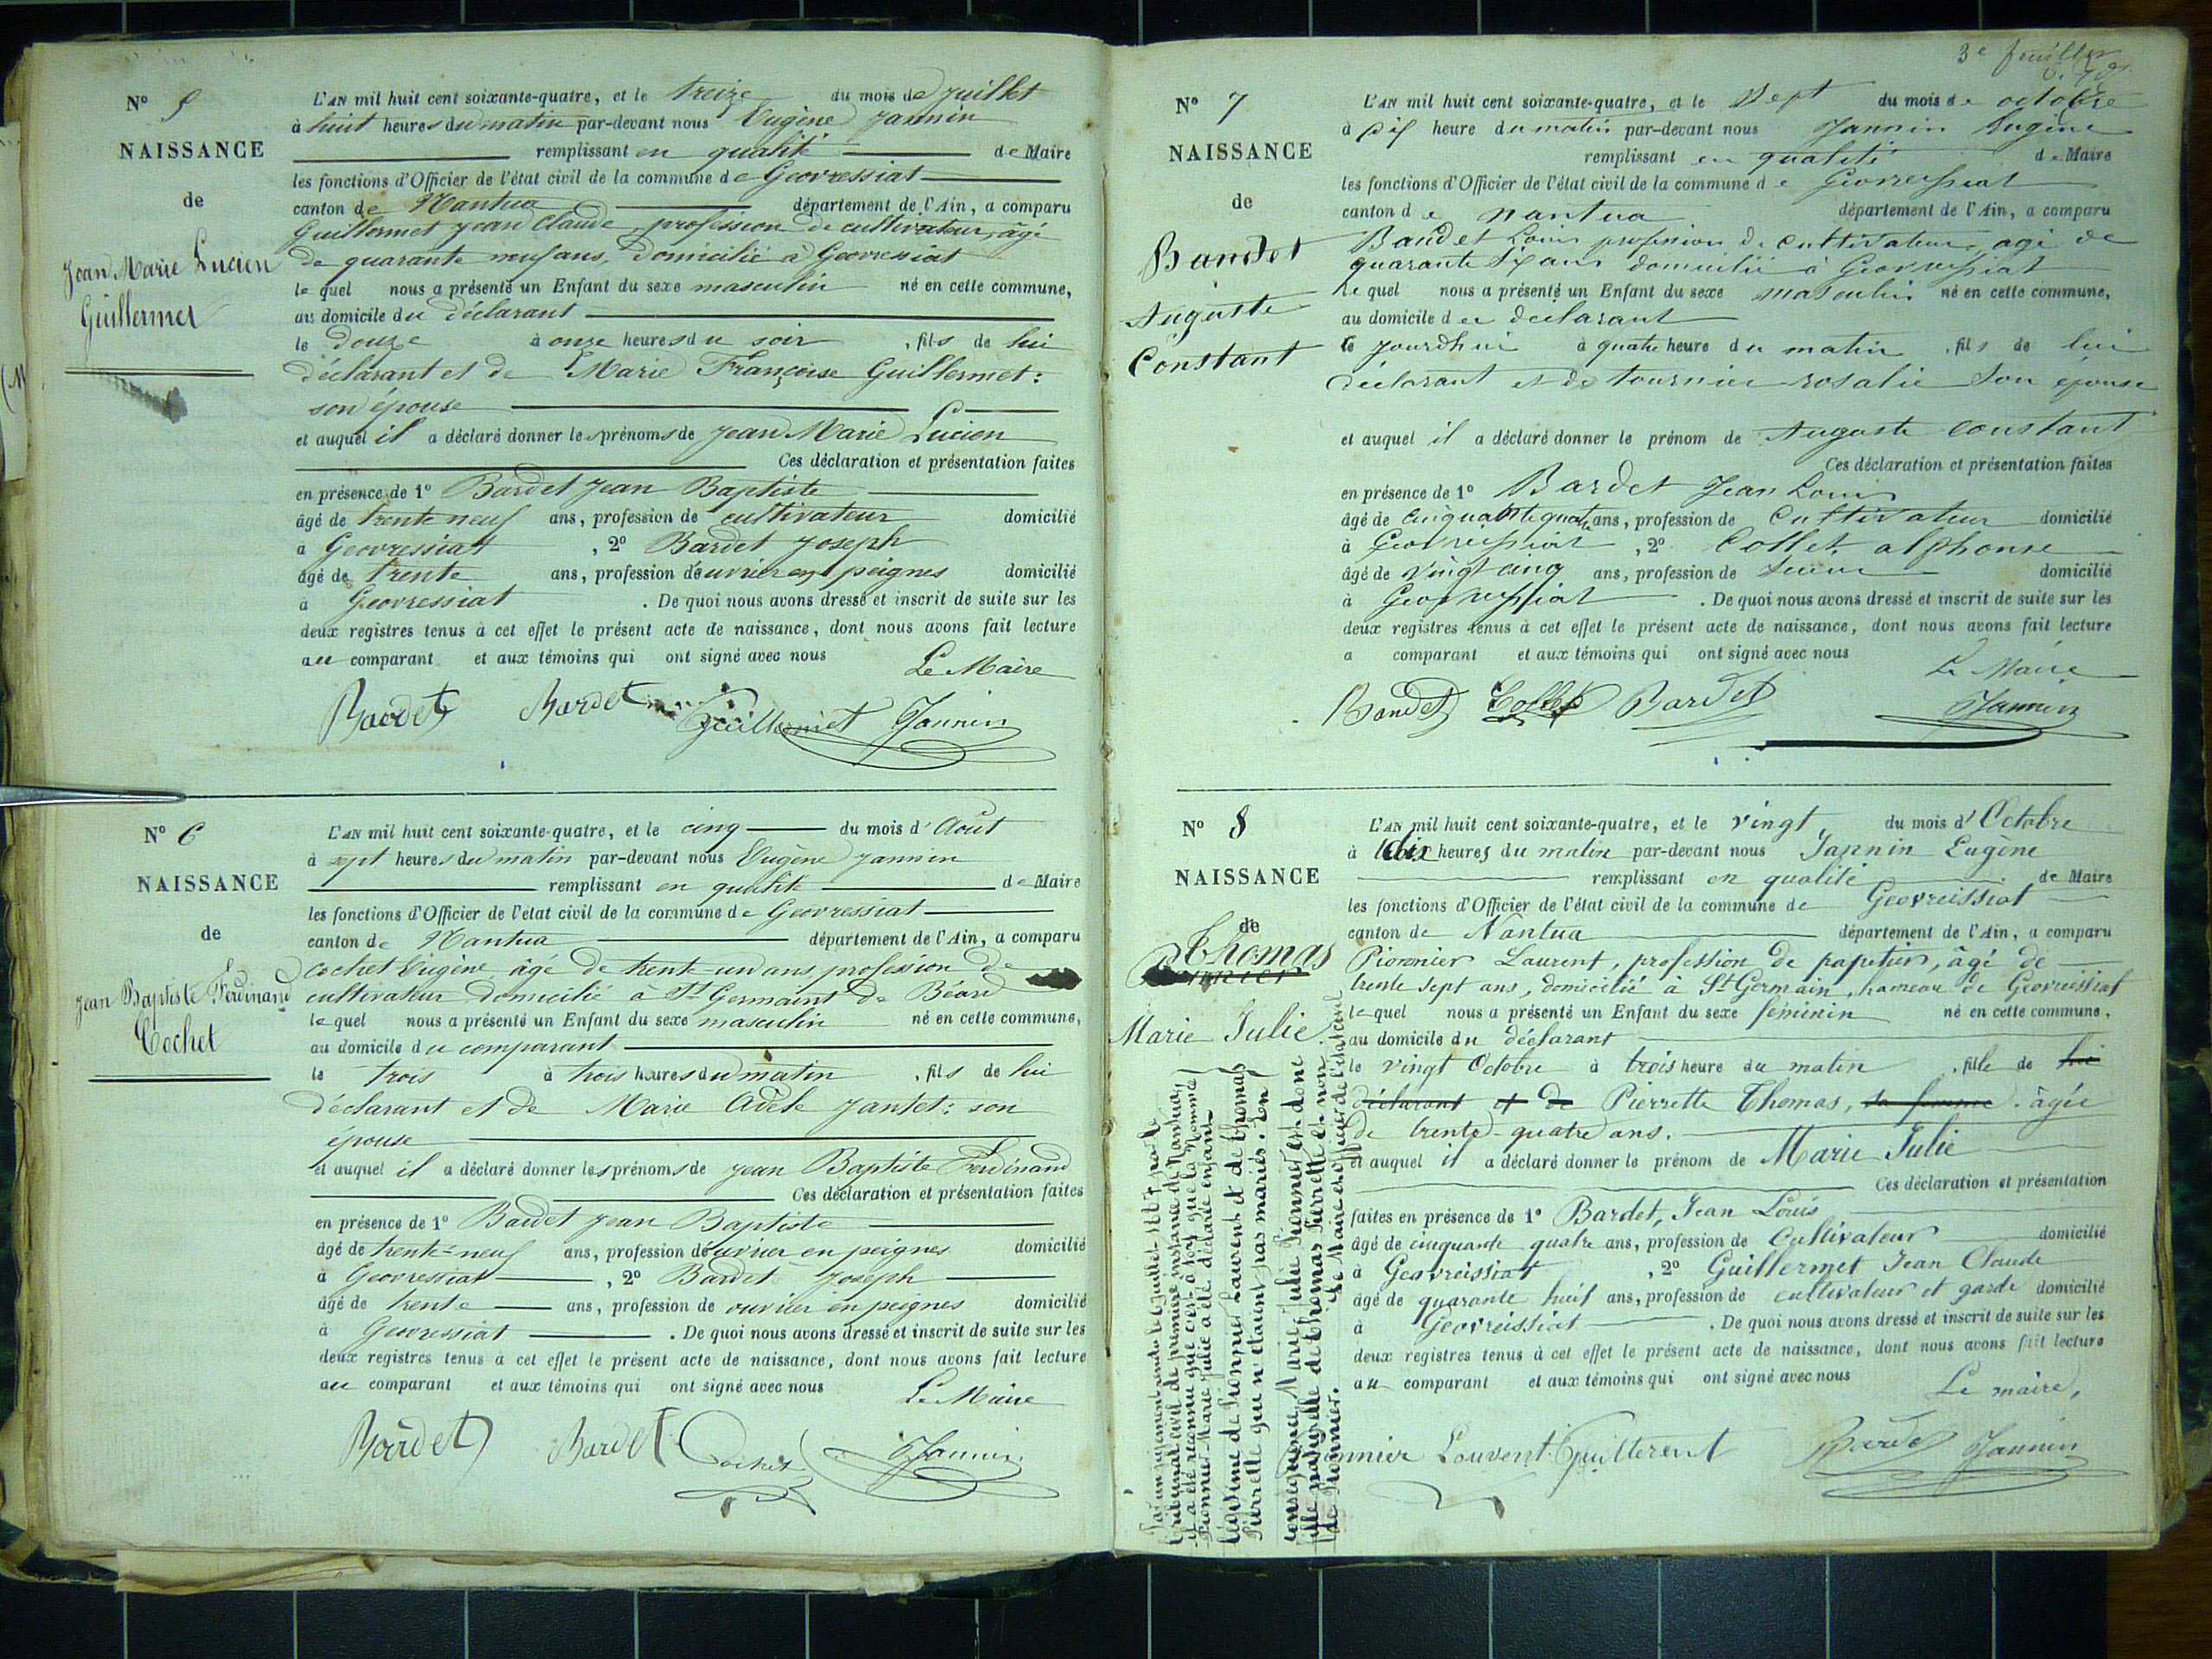 N° 5
NAISSANCE
de
Jean Marie Lucien
Guillermet
L'AN mil huit cent soixante-quatre, et le treize du mois de juillet
à huit heures du matin par-devant nous Eugène Jannin
remplissant en qualité de Maire
les fonctions d'Officier de l'état civil de la commune de Geovressiat
canton de Nantua département de l'Ain, a comparu
Guillermet Jean Claude, profession de cultivateur, âgé
de quarante neuf ans, domicilié à Geovressiat
le quel nous a présenté un Enfant du sexe masculin né en cette commune,
au domicile du déclarant
le douze à onze heures du soir , fils de lui
déclarant et de Marie Françoise Guillermet :
son épouse
et auquel il a déclaré donner les prénoms de Jean Marie Lucien
Ces déclaration et présentation faites
en présence de 1° Bardet Jean Baptiste
âgé de trente neuf ans, profession de cultivateur domicilié
à Geovressiat , 2° Bardet Joseph
âgé de trente ans, profession d'ouvrier en peignes domicilié
à Geovressiat . De quoi nous avons dressé et inscrit de suite sur les
deux registres tenus à cet effet le présent acte de naissance, dont nous avons fait lecture
au comparant et aux témoins qui ont signé avec nous
Le Maire
Bardet Bardet Guillermet Jannin
N° 6
NAISSANCE
de
Jean Baptiste Ferdinand
Cochet
L'AN mil huit cent soixante-quatre, et le cinq du mois d'Août
à sept heures du matin par-devant nous Eugène Jannin
remplissant en qualité de Maire
les fonctions d'Officier de l'état civil de la commune de Geovressiat
canton de Nantua département de l'Ain, a comparu
Cochet Eugène âgé de trente-un ans profession de
cultivateur domicilié à St Germaint de Béard
le quel nous a présenté un Enfant du sexe masculin né en cette commune,
au domicile du comparant
le trois à trois heures du matin , fils de lui
déclarant et de Marie Adèle Jantet : son
épouse
et auquel il a déclaré donner les prénoms de Jean Baptiste Ferdinand
Ces déclaration et présentation faites
en présence de 1° Bardet Jean Baptiste
âgé de trente-neuf ans, profession d'ouvrier en peignes domicilié
à Geovressiat , 2° Bardet Joseph
âgé de trente ans, profession de ouvrier en peignes domicilié
à Geovressiat . De quoi nous avons dressé et inscrit de suite sur les
deux registres tenus à cet effet le présent acte de naissance, dont nous avons fait lecture
au comparant et aux témoins qui ont signé avec nous
Le Maire
Bardet Bardet Cochet Jannin
3e feuillet
N° 7
NAISSANCE
de
Baudet
Auguste
Constant
L'AN mil huit cent soixante-quatre, et le Sept du mois de octobre
à dix heure du matin par-devant nous Jannin Eugène
remplissant en qualité de Maire
les fonctions d'Officier de l'état civil de la commune de Geovressiat
canton de nantua département de l'Ain, a comparu
Baudet Louis profession de cultivateur, agé de
quarante six ans domicilié à Geovressiat
le quel nous a présenté un Enfant du sexe masculin né en cette commune,
au domicile du declarant
le jourdhui à quatre heure du matin , fils de lui
déclarant et de tournier rosalie son epouse
et auquel il a déclaré donner le prénom de Auguste constant
Ces déclaration et présentation faites
en présence de 1° Bardet Jean Louis
âgé de cinquante quatre ans, profession de Cultivateur domicilié
à Geovressiat , 2° Collet alphonse
âgé de vingt cinq ans, profession de domicilié
à Geovressiat . De quoi nous avons dressé et inscrit de suite sur les
deux registres tenus à cet effet le présent acte de naissance, dont nous avons fait lecture
a comparant et aux témoins qui ont signé avec nous
Le Maire
Baudet Collet Bardet Jannin
N° 8
NAISSANCE
de
Thomas
Marie Julie
L'AN mil huit cent soixante-quatre, et le vingt du mois d'Octobre
à dix heures du matin par-devant nous Jannin Eugène
remplissant en qualité de Maire
les fonctions d'Officier de l'état civil de la commune de Geovreissiat
canton de Nantua département de l'Ain, a comparu
Pionnier Laurent, profession de papetier, âgé de
trente sept ans, domicilié à St Germain, hameau de Geovreissiat
le quel nous a présenté un Enfant du sexe féminin né en cette commune,
au domicile du déclarant
le vingt Octobre à trois heure du matin , fille de lui
déclarant et de Pierrette Thomas, sa femme. âgée
de trente-quatre ans.
et auquel il a déclaré donner le prénom de Marie Julie
Ces déclaration et présentation
faites en présence de 1° Bardet, Jean Louis
âgé de cinquante quatre ans, profession de Cultivateur domicilié
à Geovreissiat , 2° Guillermet Jean Claude
âgé de quarante huit ans, profession de cultivateur et garde domicilié
à Geovreissiat . De quoi nous avons dressé et inscrit de suite sur les
deux registres tenus à cet effet le présent acte de naissance, dont nous avons fait lecture
au comparant et aux témoins qui ont signé avec nous
Le maire,
Pionnier Louvent Guillerent Bardet Jannin
Par un jugement rendu le juillet 1887 par le
tribunal civil de première instance de Nantua,
il a été reconnu que c'est à tort que la nommée
Pionnier Marie Julie a été déclarée enfant
légitime de Pionnier Laurent et de Thomas
Pierrette qui n'étaient pas mariés. En
conséquence Marie Julie Pionnier est donc
fille naturelle de Thomas Pierrette et non
de Pionnier. Le Maire et officier de l'état civil,